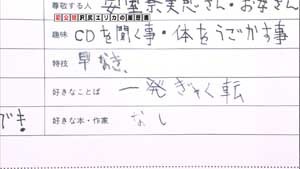 尊敬する人 安室奈美恵さん・お母さん
新企画 沢尻エリカの履歴書
趣味 CDを聞く事・体をうごかす事
特技 早なき、
好きなことば 一発ぎゃく転
でき!
好きな本・作家 なし